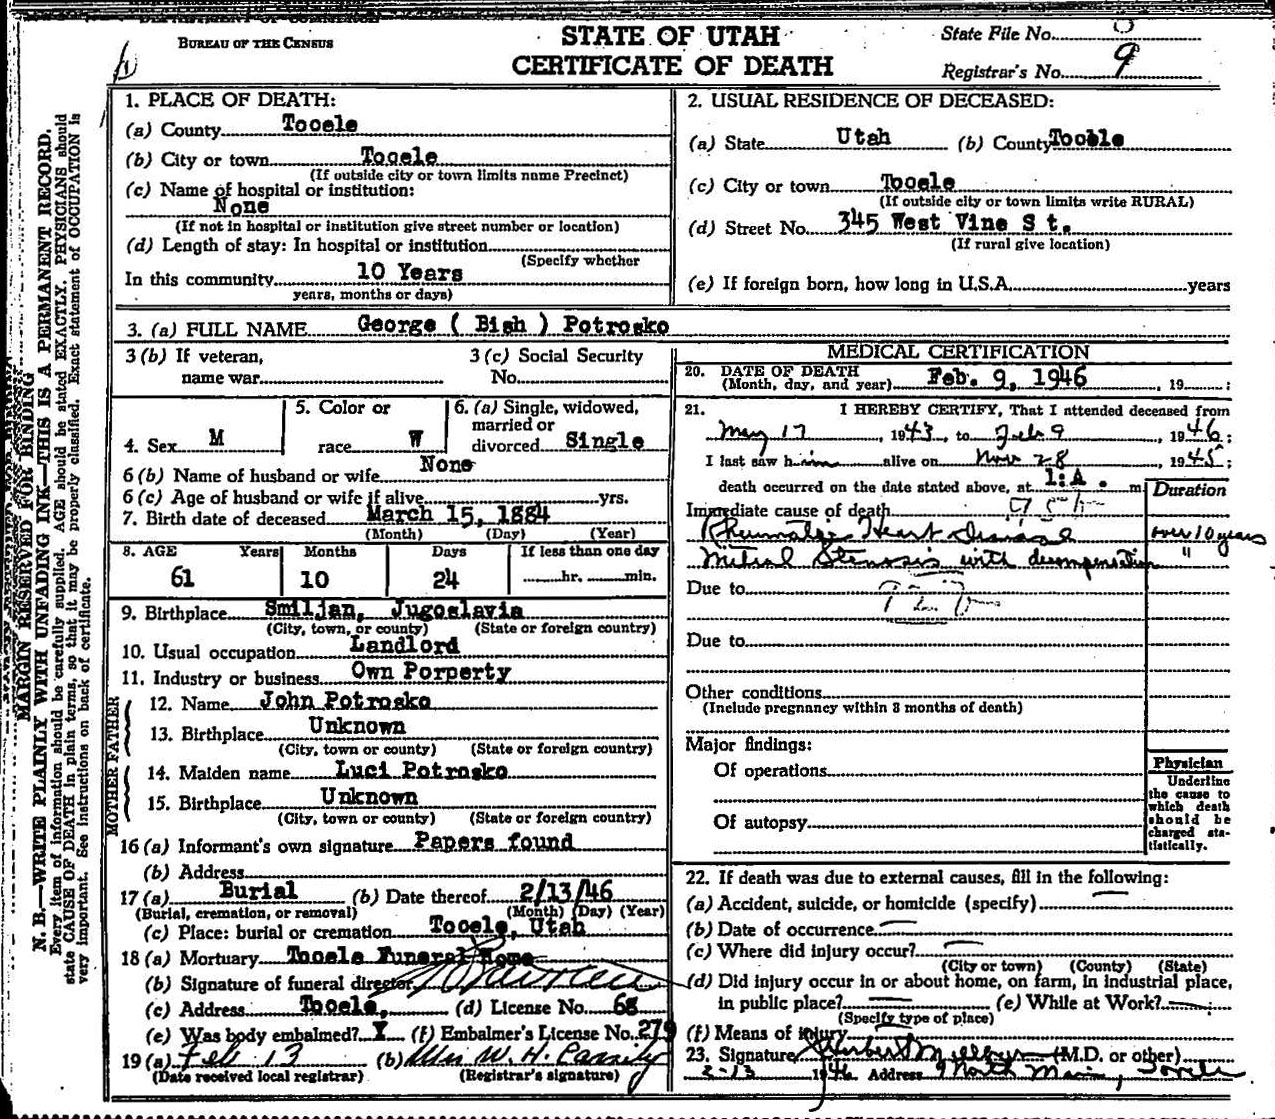 BUREAU OF THE CENSUS
STATE OF UTAH
CERTIFICATE OF DEATH
State File No.
Registrar's No. 9
MARGIN RESERVED FOR BINDING
N. B.—WRITE PLAINLY WITH UNFADING INK—THIS IS A PERMANENT RECORD.
Every item of information should be carefully supplied. AGE should be stated EXACTLY. PHYSICIANS should
state CAUSE OF DEATH in plain terms, so that it may be properly classified. Exact statement of OCCUPATION is
very important. See instructions on back of certificate.
1. PLACE OF DEATH:
(a) County Tooele
(b) City or town Tooele
(If outside city or town limits name Precinct)
(c) Name of hospital or institution:
None
(If not in hospital or institution give street number or location)
(d) Length of stay: In hospital or institution
(Specify whether
In this community 10 Years
years, months or days)
2. USUAL RESIDENCE OF DECEASED:
(a) State Utah (b) County Tooele
(c) City or town Tooele
(If outside city or town limits write RURAL)
(d) Street No. 345 West Vine S t.
(If rural give location)
(e) If foreign born, how long in U.S.A. years
3. (a) FULL NAME George ( Bish ) Potrosko
3 (b) If veteran,
name war
3 (c) Social Security
No.
4. Sex M
5. Color or
race W
6. (a) Single, widowed,
married or
divorced Single
6 (b) Name of husband or wife None
6 (c) Age of husband or wife if alive yrs.
7. Birth date of deceased March 15, 1884
(Month) (Day) (Year)
8. AGE Years Months Days If less than one day
61 10 24 hr. min.
9. Birthplace Smiljan, Jugoslavia
(City, town, or county) (State or foreign country)
10. Usual occupation Landlord
11. Industry or business Own Porperty
FATHER
12. Name John Potrosko
13. Birthplace Unknown
(City, town or county) (State or foreign country)
MOTHER
14. Maiden name Luci Potrosko
15. Birthplace Unknown
(City, town or county) (State or foreign country)
16 (a) Informant's own signature Papers found
(b) Address
17 (a) Burial (b) Date thereof 2/13/46
(Burial, cremation, or removal) (Month) (Day) (Year)
(c) Place: burial or cremation Tooele, Utah
18 (a) Mortuary Tooele Funeral Home
(b) Signature of funeral director
(c) Address Tooele, (d) License No. 68
(e) Was body embalmed? Y (f) Embalmer's License No. 279
19 (a) Feb 13 (b) Mrs W. H. Cassity
(Date received local registrar) (Registrar's signature)
MEDICAL CERTIFICATION
20. DATE OF DEATH
(Month, day, and year) Feb. 9, 1946, 19 ;
21. I HEREBY CERTIFY, That I attended deceased from
May 17, 1943, to Feb 9, 1946;
I last saw him alive on Nov 28, 1945;
death occurred on the date stated above, at 1:A. m
Duration
Immediate cause of death
Rheumatic Heart disease over 10 years
Mitral Stenosis with decompensation "
Due to
Due to
Other conditions
(Include pregnancy within 3 months of death)
Major findings:
Of operations
Of autopsy
Physician
Underline
the cause to
which death
should be
charged sta-
tistically.
22. If death was due to external causes, fill in the following:
(a) Accident, suicide, or homicide (specify)
(b) Date of occurrence
(c) Where did injury occur?
(City or town) (County) (State)
(d) Did injury occur in or about home, on farm, in industrial place,
in public place? (e) While at Work?
(Specify type of place)
(f) Means of injury
23. Signature (M.D. or other)
2-13 1946 Address 9 North Main, Tooele